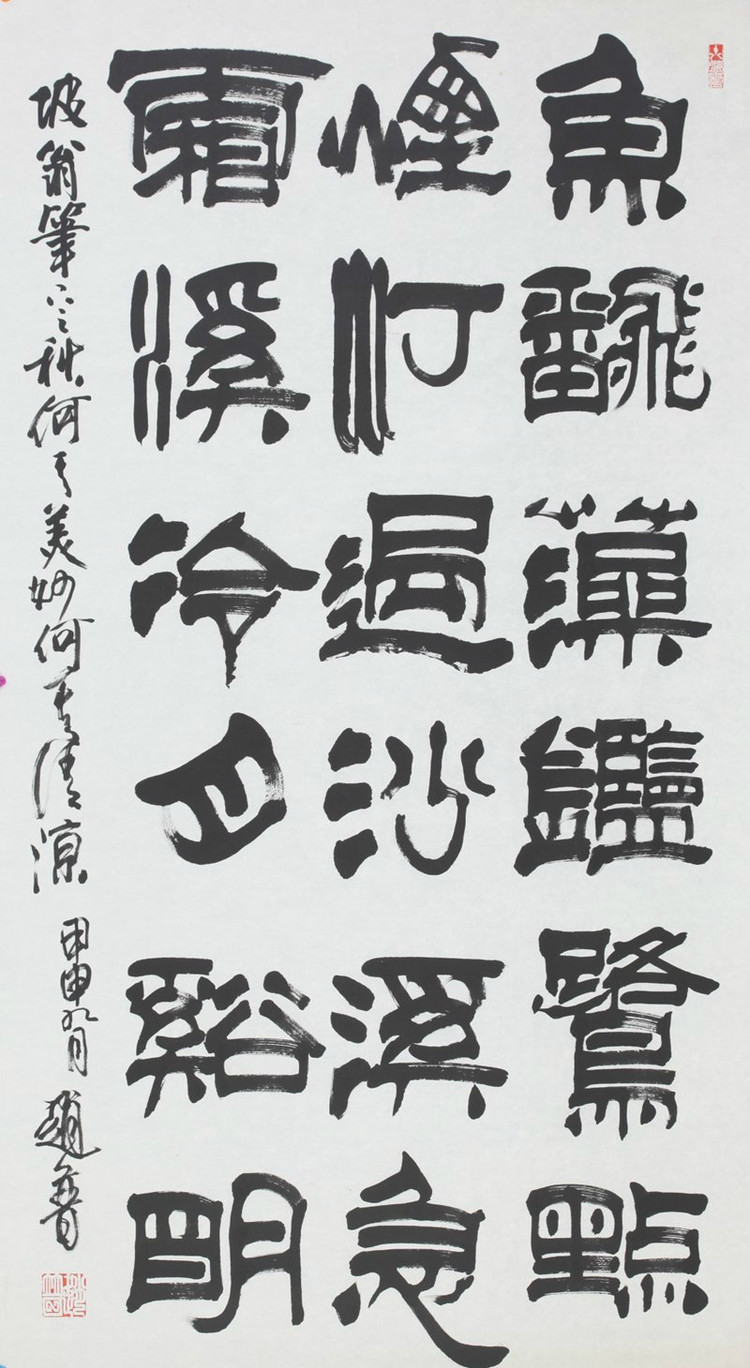 魚飜藻鑑鷺點
煙汀過沙溪急
霜溪冷月谿明
坡翁筆下之秋何其美妙何其清涼 甲申九月 趙普